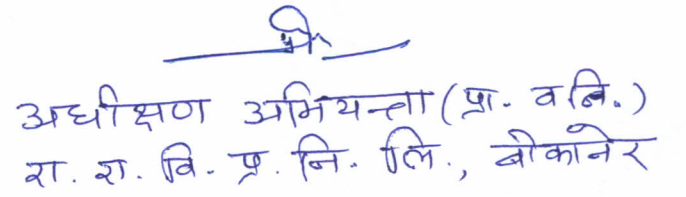 अधीक्षण अभियन्ता (प्रा. व नि.)
रा. रा. वि. प्र. नि. लि., बीकानेर